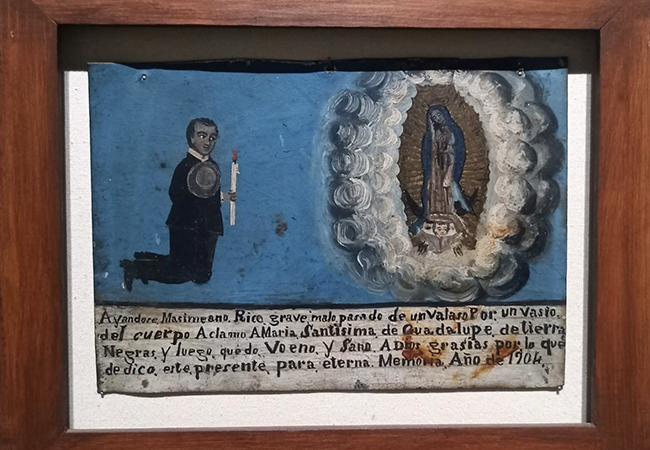 Ayandose, Masimeano, Rico, grave, malo parado de un Valaso Por, un Vasio.
del cuerpo Aclamo A Maria, Santísima de Guadalupe, de tierra
Negras, y luego, quedo, Voeno, y Sano A Dios grasias por lo que
de dico, este, presente, para, eterna. Memoria, Año de 1904,